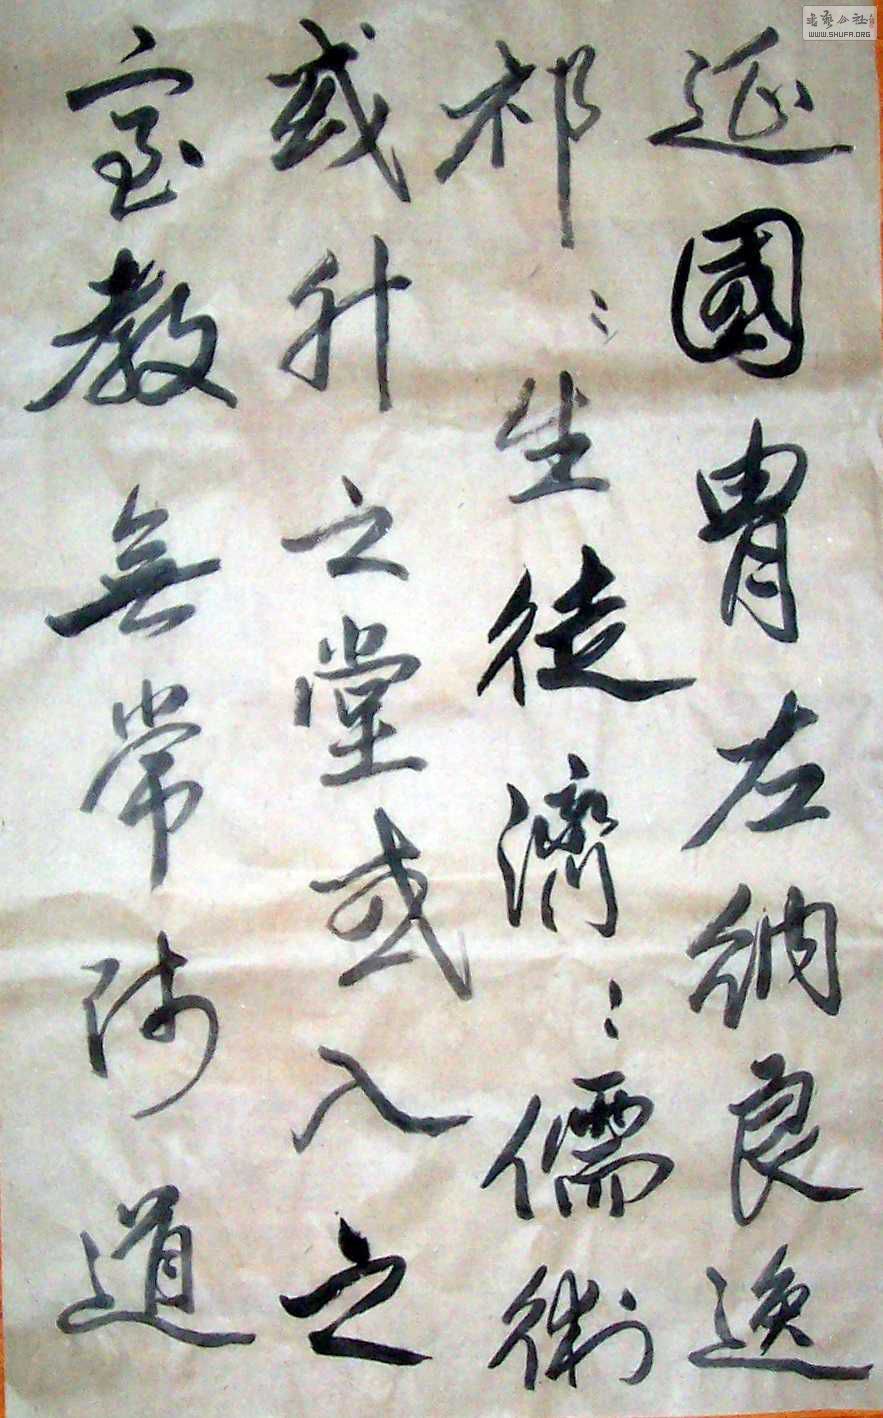 延國胄左納良逸
祁〻生徒濟〻儒術
或升之堂或入之
室教無常师道
書藝公社
WWW.SHUFA.ORG